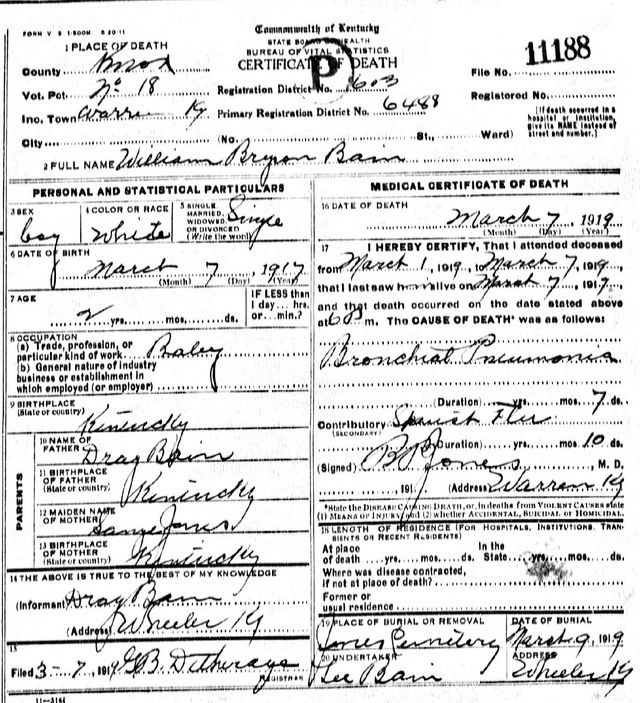 FORM V S 1-500M 8 20-11
Commonwealth of Kentucky
STATE BOARD OF HEALTH
BUREAU OF VITAL STATISTICS
CERTIFICATE OF DEATH
P
11188
1 PLACE OF DEATH
County Knox
Vot. Pct. No 18
Inc. Town Warren Ky
City
Registration District No. 603
Primary Registration District No. 6488
File No.
Registered No.
(No. St., Ward)
[If death occurred in a hospital or institution, give its NAME instead of street and number.]
2 FULL NAME William Bryson Bain
PERSONAL AND STATISTICAL PARTICULARS
3 SEX
Boy
4 COLOR OR RACE
White
5 SINGLE, MARRIED, WIDOWED OR DIVORCED (Write the word)
Single
6 DATE OF BIRTH
March 7, 1917
(Month) (Day) (Year)
7 AGE
2 yrs. mos. ds.
IF LESS than
1 day... hrs.
or... min.?
8 OCCUPATION
(a) Trade, profession, or
particular kind of work Baby
(b) General nature of industry
business or establishment in
which employed (or employer)
9 BIRTHPLACE
(State or country)
Kentucky
PARENTS
10 NAME OF
FATHER Dray Bain
11 BIRTHPLACE
OF FATHER
(State or country) Kentucky
12 MAIDEN NAME
OF MOTHER Jones
13 BIRTHPLACE
OF MOTHER
(State or country) Kentucky
14 THE ABOVE IS TRUE TO THE BEST OF MY KNOWLEDGE
(Informant Dray Bain
(Address) Wheeler Ky
15
Filed 3-7, 1919 G.B.
REGISTRAR
11-3184
MEDICAL CERTIFICATE OF DEATH
16 DATE OF DEATH
March 7, 1919
(Month) (Day) (Year)
17 I HEREBY CERTIFY, That I attended deceased
from March 1, 1919, March 7, 1919
that I last saw h alive on March 7, 1917
and that death occurred on the date stated above
at m. The CAUSE OF DEATH* was as follows:
Bronchial Pneumonia
(Duration) yrs. mos. 7 ds.
Contributory Spanish Flu
(SECONDARY)
(Duration) yrs. mos. 10 ds.
(Signed) Jones, M. D.
, 191 (Address) Warren Ky
*State the DISEASE CAUSING DEATH, or, in deaths from VIOLENT CAUSES state
(1) MEANS OF INJURY; and (2) whether ACCIDENTAL, SUICIDAL or HOMICIDAL.
18 LENGTH OF RESIDENCE (FOR HOSPITALS, INSTITUTIONS, TRANSIENTS OR RECENT RESIDENTS)
At place of death yrs. mos. ds. In the State yrs. mos. ds.
Where was disease contracted,
if not at place of death?
Former or
usual residence
19 PLACE OF BURIAL OR REMOVAL
Jones Cemetery
DATE OF BURIAL
March 9, 1919
20 UNDERTAKER
Lee Bain
ADDRESS
Wheeler Ky